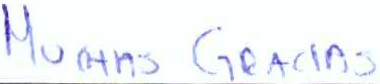 Muchas Gracias